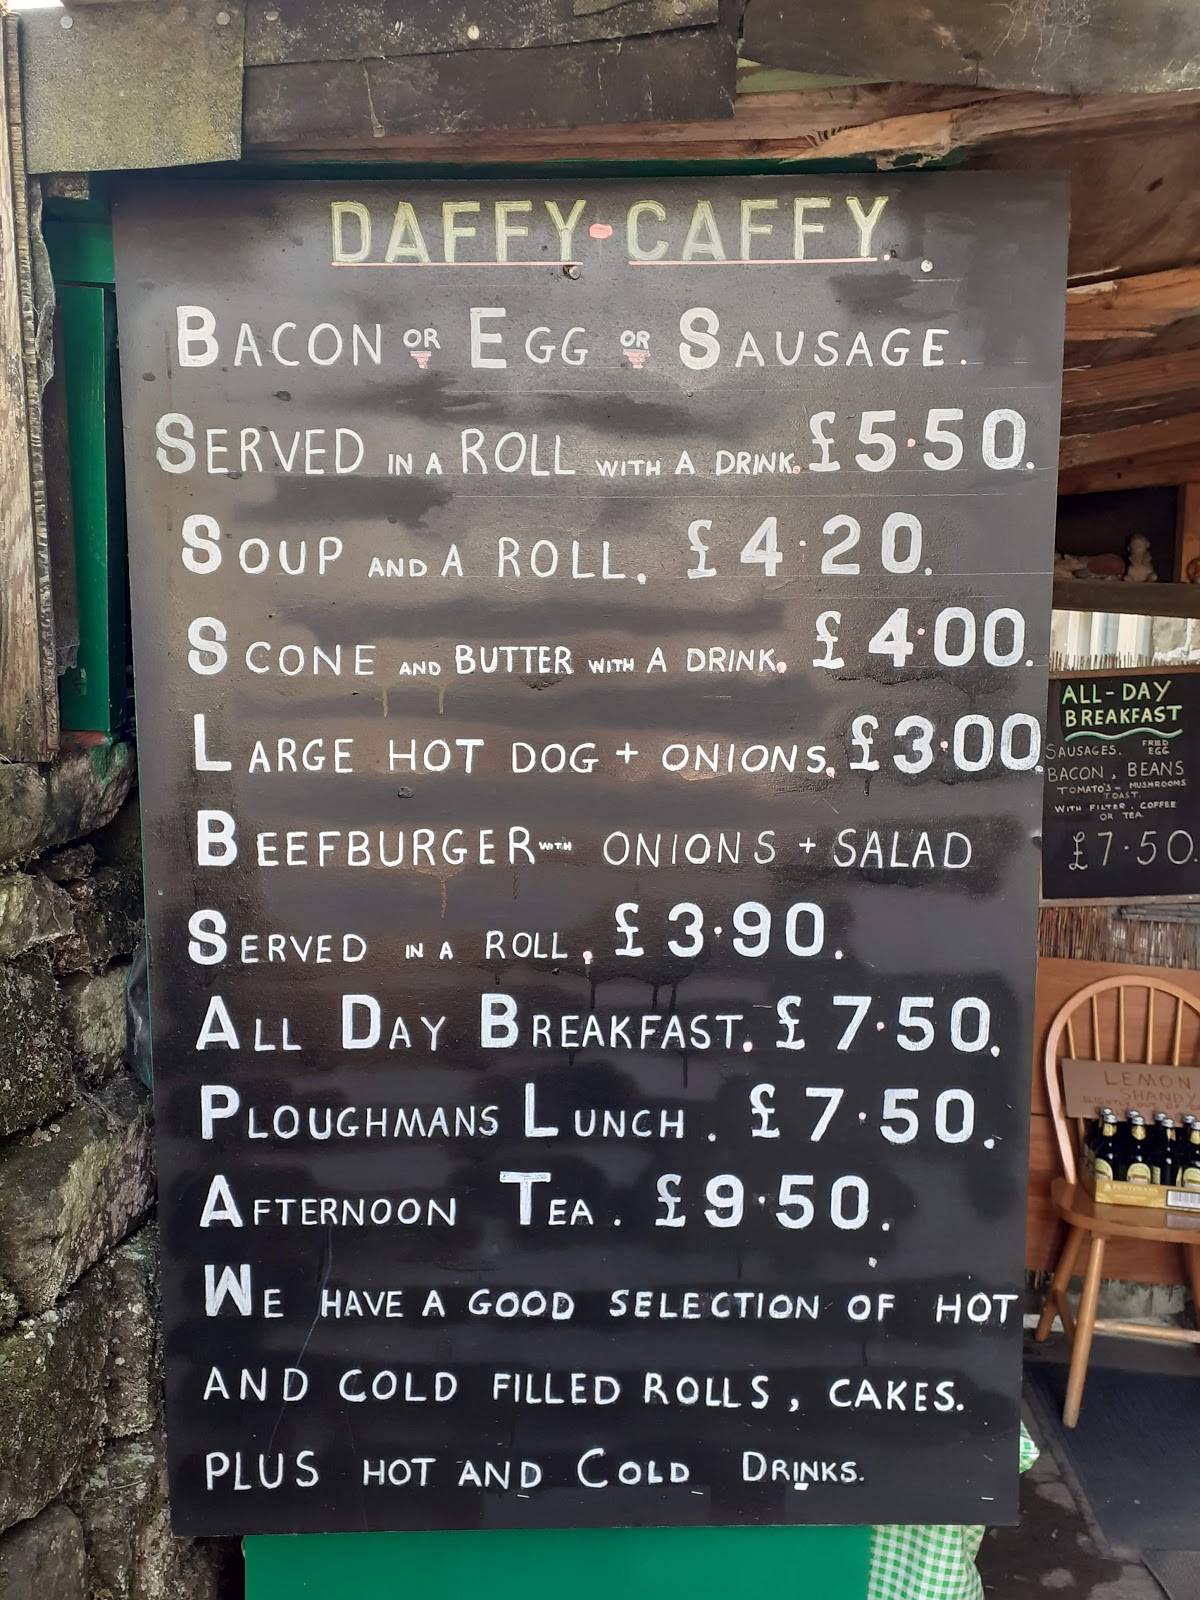 DAFFY·CAFFY.
BACON OR EGG OR SAUSAGE.
SERVED IN A ROLL WITH A DRINK. £5·50.
SOUP AND A ROLL. £4·20.
SCONE AND BUTTER WITH A DRINK. £4·00.
LARGE HOT DOG + ONIONS. £3·00
BEEFBURGER WITH ONIONS + SALAD
SERVED IN A ROLL. £3·90.
ALL DAY BREAKFAST. £7·50.
PLOUGHMANS LUNCH. £7·50.
AFTERNOON TEA. £9·50.
WE HAVE A GOOD SELECTION OF HOT
AND COLD FILLED ROLLS, CAKES.
PLUS HOT AND COLD DRINKS.
ALL-DAY
BREAKFAST
SAUSAGES. FRIED EGG
BACON, BEANS
TOMATO'S - MUSHROOMS
TOAST.
WITH FILTER. COFFEE
OR TEA
£7·50.
LEMON
SHANDY